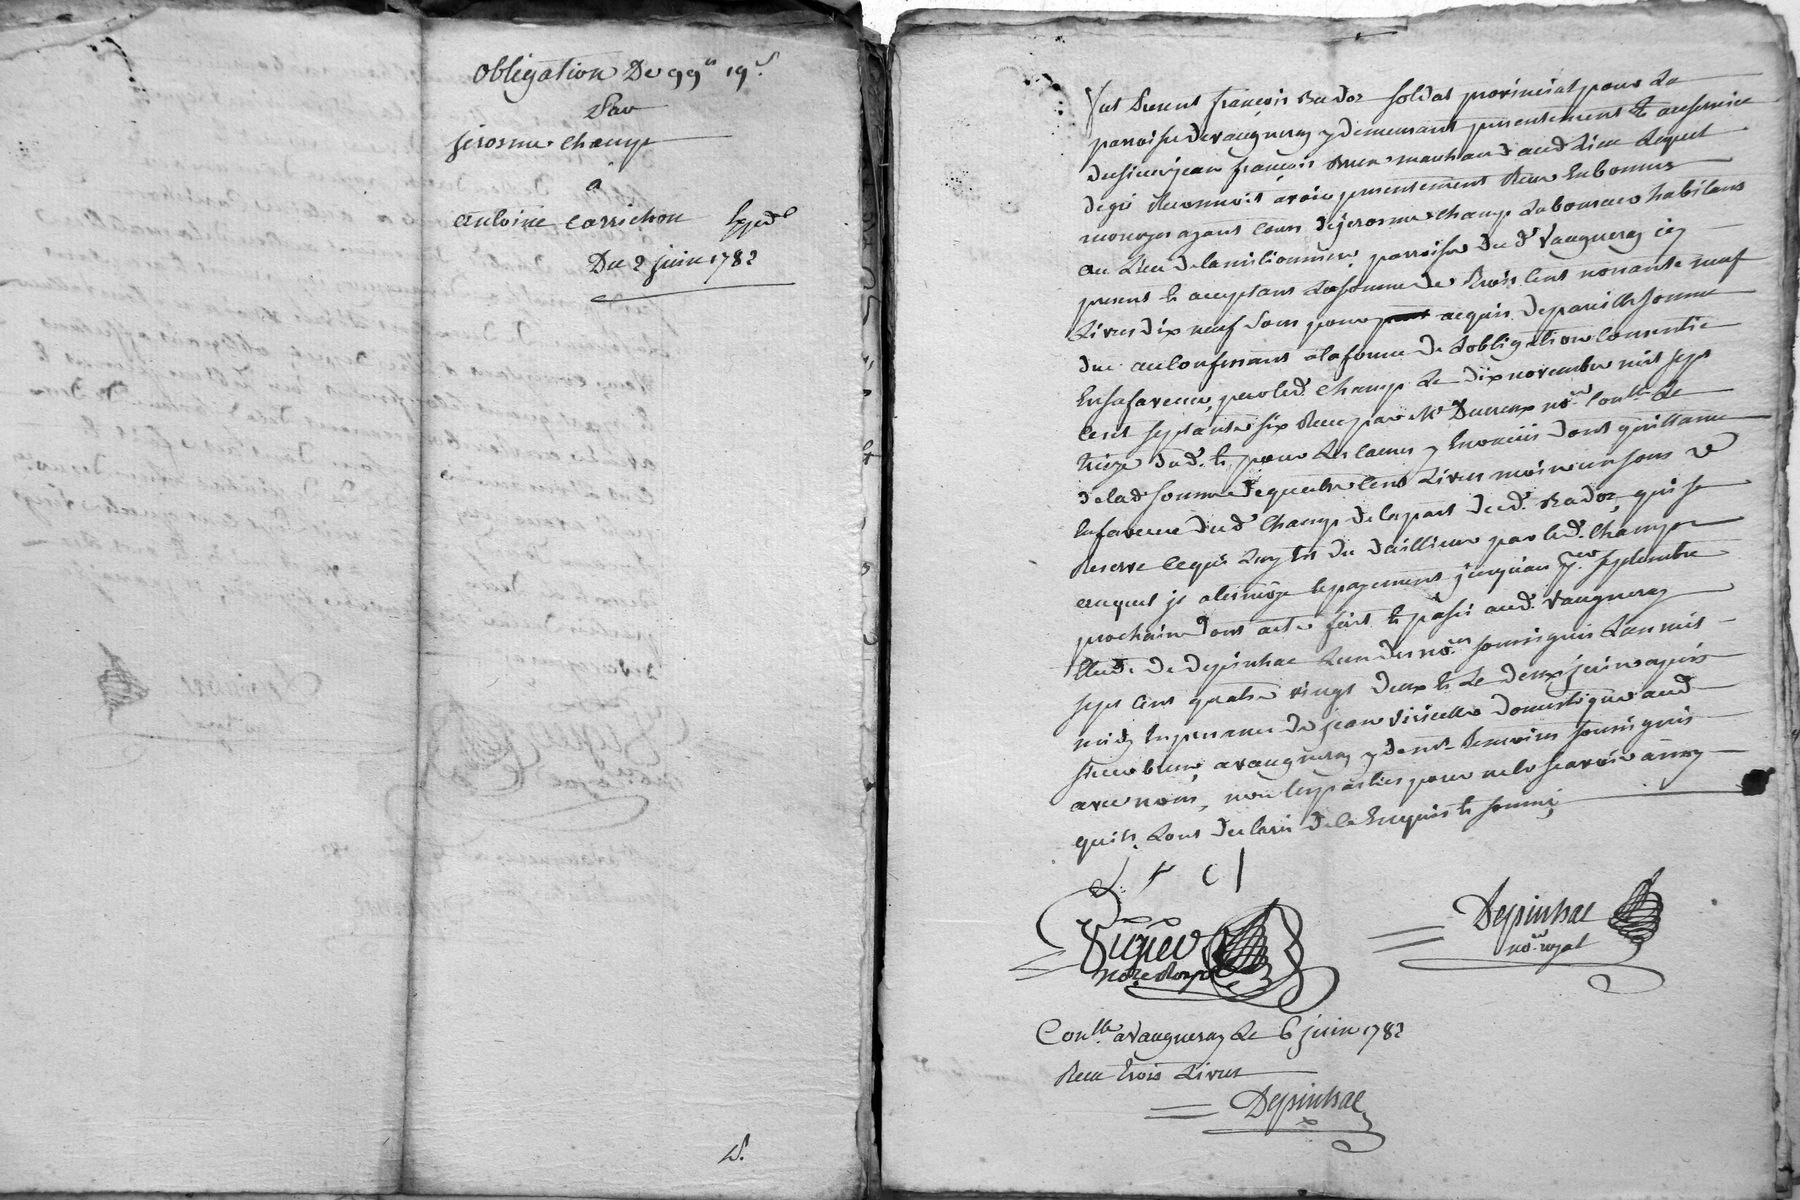 obligation De 99ᵗᵗ 19ˢ
Par
jerosme champ
a
antoine carrichon Exped
Du 2 juin 1782
fut Present françois Badoz soldat provincial pour La
parroisse de vaugneray y demeurant presentement et au service
du sieur jean françois Brun marchand aud Lieu Lequel
de gré Reconnoit avoir presentement Recu En bonnes
monoyes ayant cours de jerosme champ Laboureur habitant
au Lieu de lamilionniere parroisse du d. Vaugneray icy
present et acceptant La somme de trois Cent nonante neuf
Livres dix neuf Sous pour acquis de pareille somme
due au Confessant a la forme de L'obligation Consentie
En sa faveur par led. champ Le dix novembre mil sept
Cent septante six Recu par Mᵉ no.ʳᵉ Con.ˡˡᵉ Le
treize dud. et pour Les causes y Enoncées dont quittance
de lad somme de quatre Cens Livres moins un sous
En faveur dud champ de la part dud. Badoz qui se
Reserve Ce qui Luy est du d'ailleurs par led. champ
auquel jl a terme Le payement jusqu'au septembre
prochain dont acte fait et passé aud. Vaugneray
Etude de Depinhac L'un des no.ʳᵉˢ soussignés L'an mil
sept Cent quatre vingt deux et Le deux juin après
midy En presence de jean domestique aud
sieur brun a vaugneray y dem.ᵗ temoins soussignés
avec nous, non Les parties pour ne le scavoir ainsy
quils L'ont declaré de ce Enquis et sommé
Depinhac
no.ʳᵉ royal
no.ʳᵉ Royal
Con.ˡˡᵉ a Vaugneray Le 6 juin 1782
Recu trois Livres
Depinhac